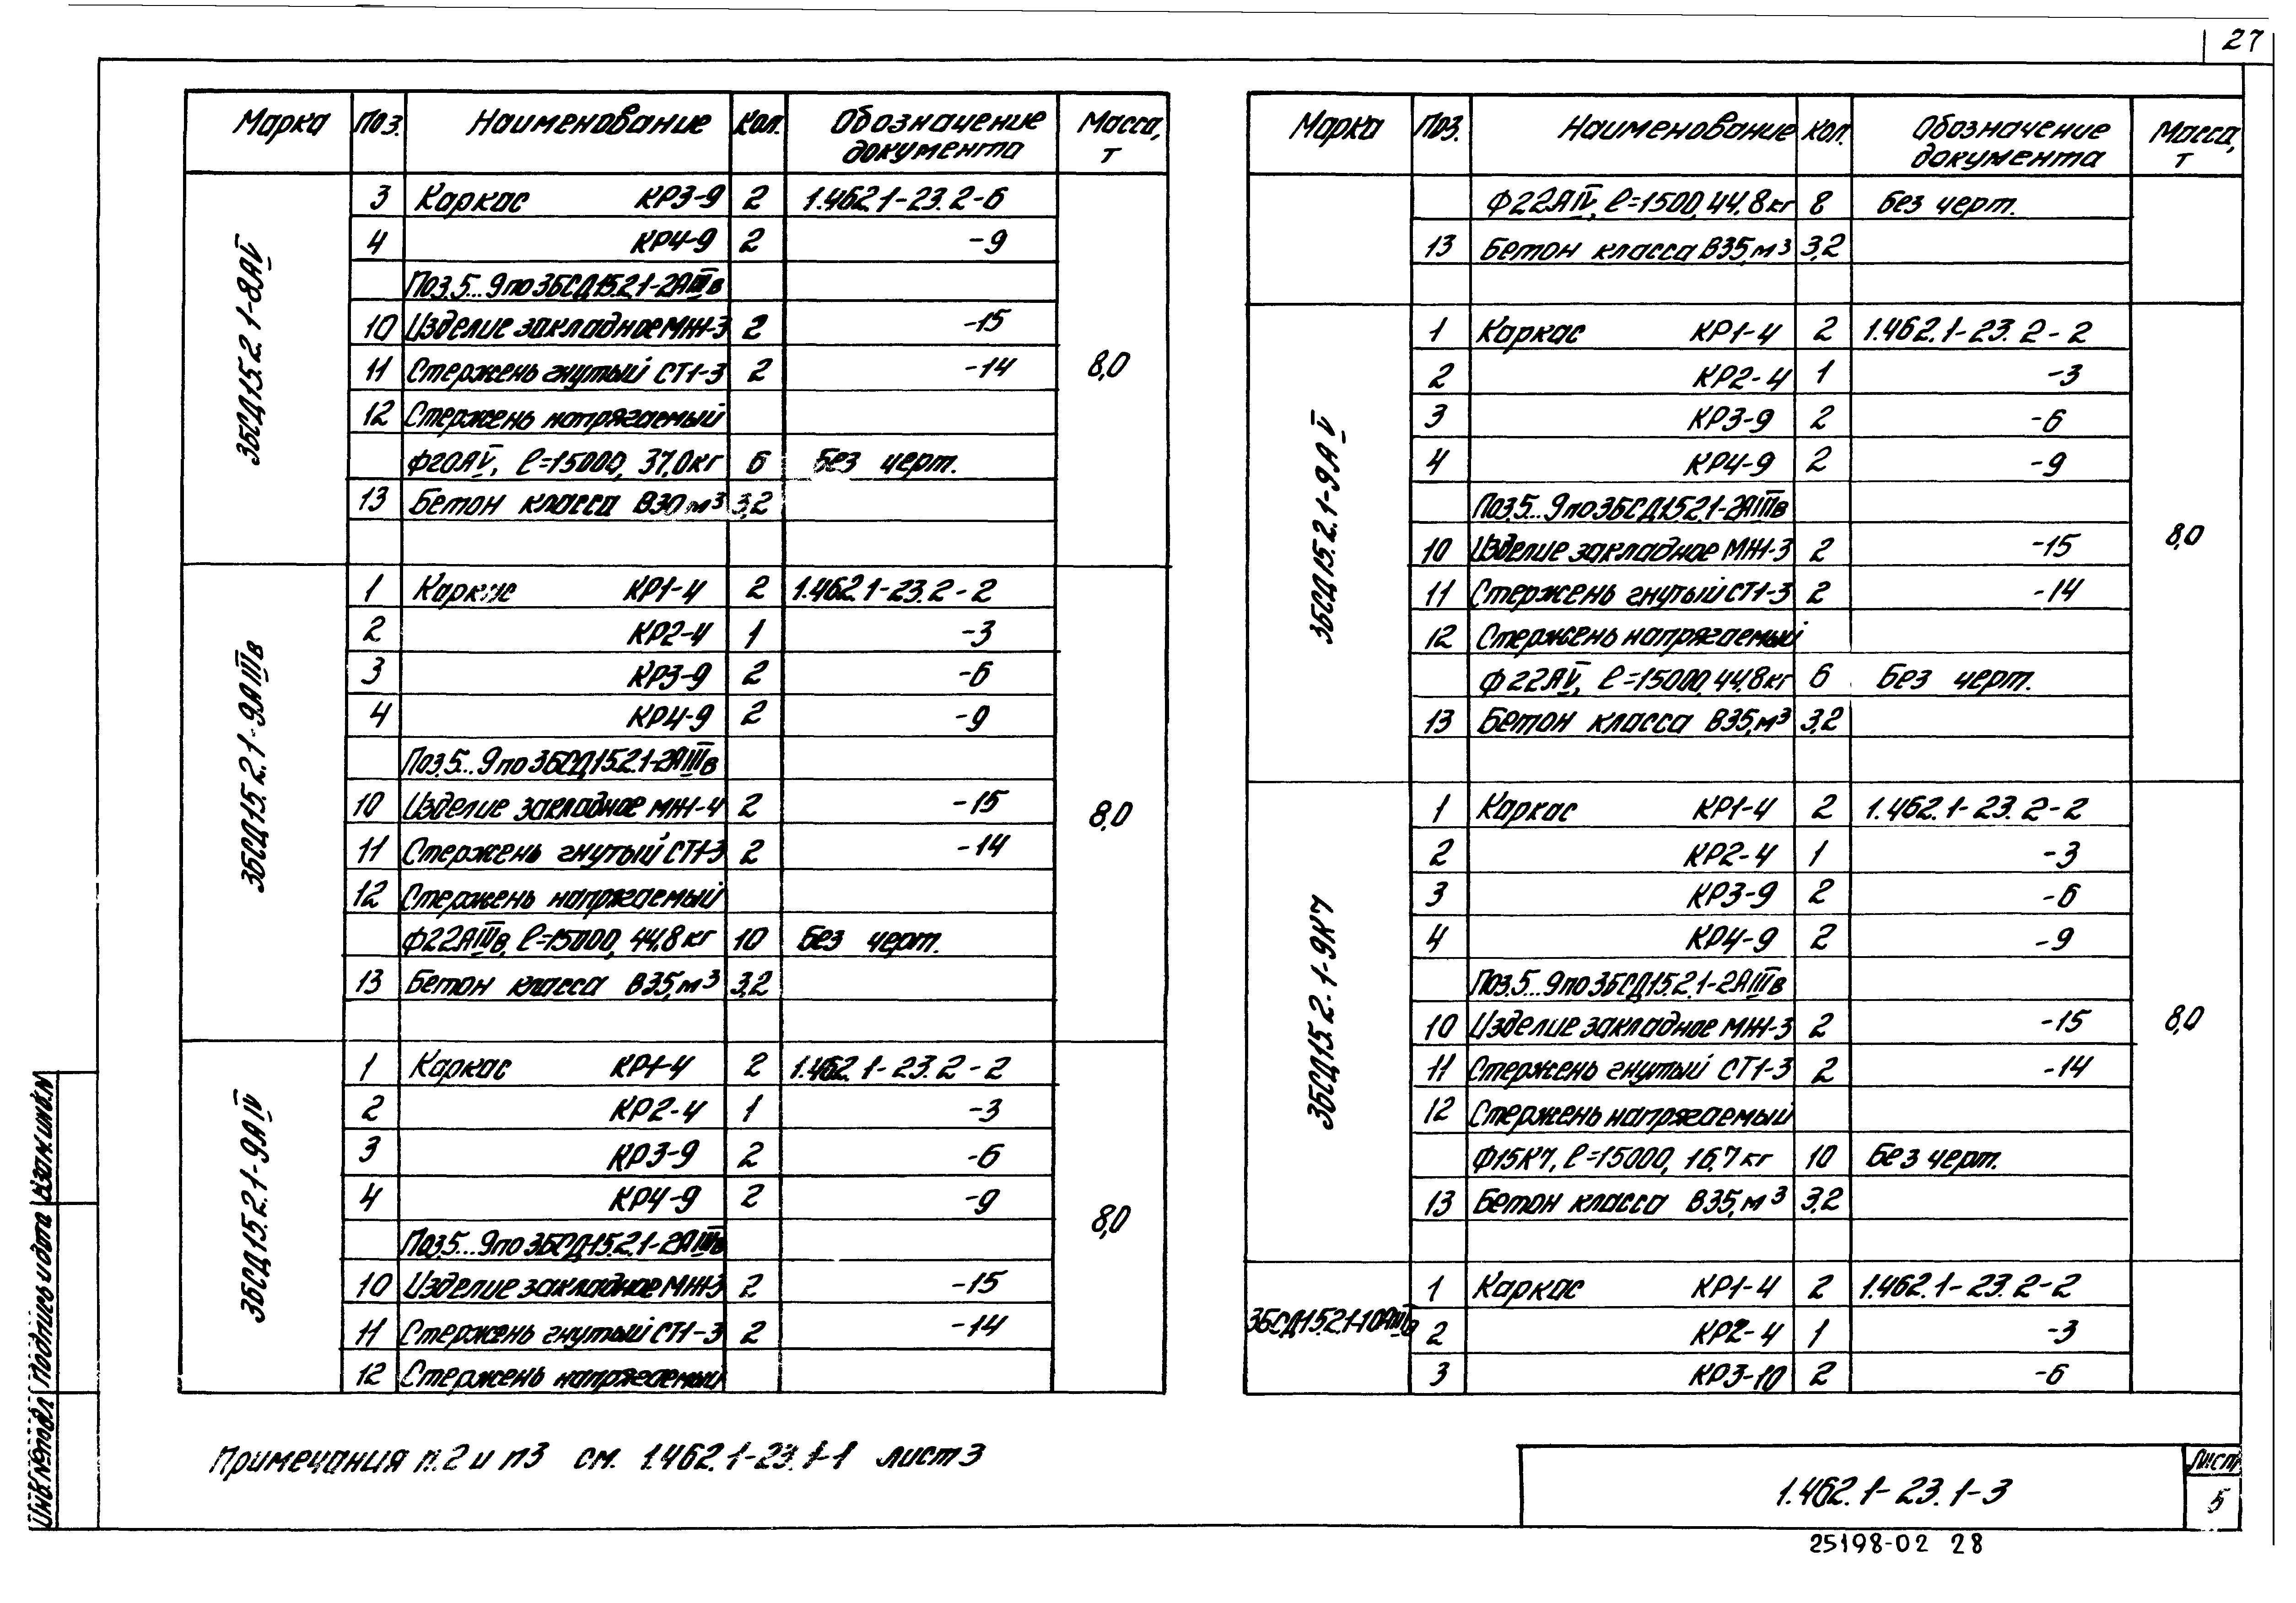 27
Марка Поз. Наименование Кол. Обозначение документа Масса, т
3БСД15.2.1-8АV
3 Каркас КР3-9 2 1.462.1-23.2-6
4 КР4-9 2 -9
Поз.5...9 по 3БСД15.2.1-2АIIIв
10 Изделие закладное МН-3 2 -15
11 Стержень гнутый СТ1-3 2 -14
8,0
12 Стержень напрягаемый
Ф20АV, ℓ=15000, 37,0кг 6 Без черт.
13 Бетон класса В30 м³ 3,2
3БСД15.2.1-9АIIIв
1 Каркас КР1-4 2 1.462.1-23.2-2
2 КР2-4 1 -3
3 КР3-9 2 -6
4 КР4-9 2 -9
Поз.5...9 по 3БСД15.2.1-2АIIIв
10 Изделие закладное МН-4 2 -15
8,0
11 Стержень гнутый СТ1-3 2 -14
12 Стержень напрягаемый
Ф22АIIIв, ℓ=15000, 44,8кг 10 Без черт.
13 Бетон класса В35, м³ 3,2
3БСД15.2.1-9АIV
1 Каркас КР1-4 2 1.462.1-23.2-2
2 КР2-4 1 -3
3 КР3-9 2 -6
4 КР4-9 2 -9
8,0
Поз.5...9 по 3БСД15.2.1-2АIIIв
10 Изделие закладное МН-3 2 -15
11 Стержень гнутый СТ1-3 2 -14
12 Стержень напрягаемый
Марка Поз. Наименование Кол. Обозначение документа Масса, т
Ф22АIV, ℓ=1500, 44,8кг 8 Без черт.
13 Бетон класса В35, м³ 3,2
3БСД15.2.1-9АV
1 Каркас КР1-4 2 1.462.1-23.2-2
2 КР2-4 1 -3
3 КР3-9 2 -6
4 КР4-9 2 -9
Поз.5...9 по 3БСД15.2.1-2АIIIв
10 Изделие закладное МН-3 2 -15
8,0
11 Стержень гнутый СТ1-3 2 -14
12 Стержень напрягаемый
Ф22АV, ℓ=15000, 44,8кг 6 Без черт.
13 Бетон класса В35, м³ 3,2
3БСД15.2.1-9К7
1 Каркас КР1-4 2 1.462.1-23.2-2
2 КР2-4 1 -3
3 КР3-9 2 -6
4 КР4-9 2 -9
Поз.5...9 по 3БСД15.2.1-2АIIIв
10 Изделие закладное МН-3 2 -15
8,0
11 Стержень гнутый СТ1-3 2 -14
12 Стержень напрягаемый
Ф15К7, ℓ=15000, 16,7кг 10 Без черт.
13 Бетон класса В35, м³ 3,2
3БСД15.2.1-10АIIIв
1 Каркас КР1-4 2 1.462.1-23.2-2
2 КР2-4 1 -3
3 КР3-10 2 -6
Примечания п.2 и п3 см. 1.462.1-23.1-1 лист 3
1.462.1-23.1-3
Лист
5
25198-02 28
Инв.№подл Подпись и дата Взам.инв.N